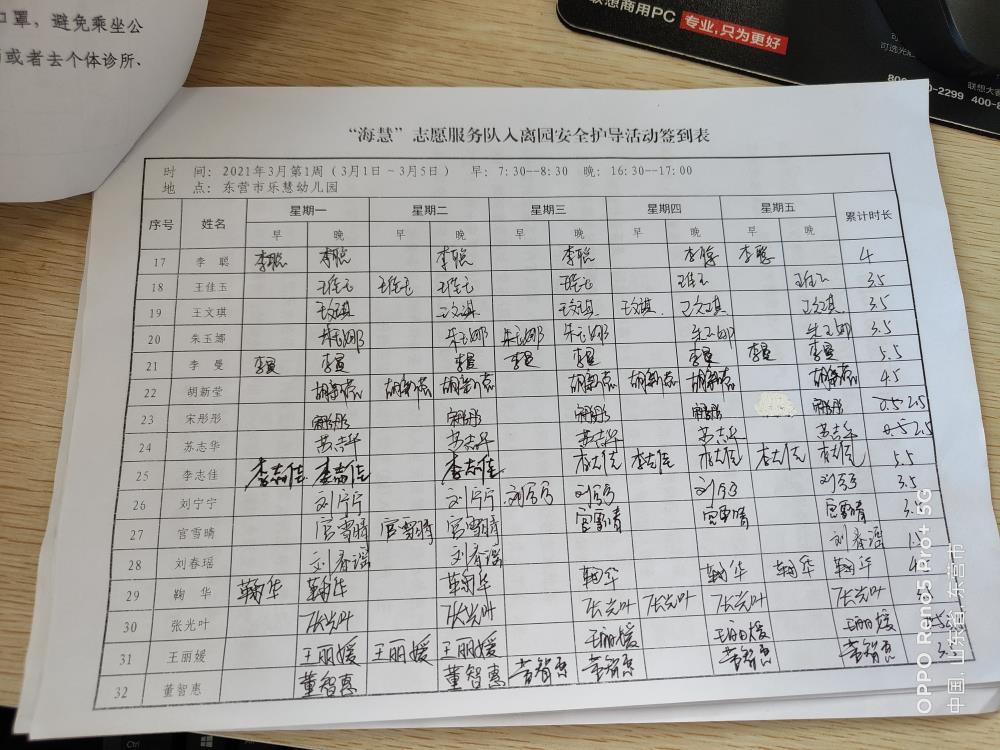 口罩，避免乘坐公
或者去个体诊所、
联想商用PC 专业,只为更好
“海慧”志愿服务队入离园安全护导活动签到表
时 间：2021年3月第1周（3月1日～3月5日） 早：7:30--8:30 晚：16:30--17:00
地 点：东营市乐慧幼儿园
序号 姓名 星期一 星期二 星期三 星期四 星期五 累计时长
早 晚 早 晚 早 晚 早 晚 早 晚
17 李 聪 李聪 李聪 李聪 李聪 李聪 李聪 4
18 王佳玉 王佳玉 王佳玉 王佳玉 王佳玉 王佳玉 王佳玉 3.5
19 王文琪 王文琪 王文琪 王文琪 王文琪 王文琪 王文琪 3.5
20 朱玉娜 朱玉娜 朱玉娜 朱玉娜 朱玉娜 朱玉娜 朱玉娜 3.5
21 李 曼 李曼 李曼 李曼 李曼 李曼 李曼 李曼 李曼 5.5
22 胡新莹 胡新莹 胡新莹 胡新莹 胡新莹 胡新莹 胡新莹 胡新莹 4.5
23 宋彤彤 宋彤彤 宋彤彤 宋彤彤 宋彤彤 宋彤彤 2.5
24 苏志华 苏志华 苏志华 苏志华 苏志华 苏志华 2.5
25 李志佳 李志佳 李志佳 李志佳 李志佳 李志佳 李志佳 李志佳 李志佳 5.5
26 刘宁宁 刘宁宁 刘宁宁 刘宁宁 刘宁宁 刘宁宁 刘宁宁 3.5
27 官雪晴 官雪晴 官雪晴 官雪晴 官雪晴 官雪晴 官雪晴
28 刘春瑶 刘春瑶 刘春瑶 刘春瑶 1.5
29 鞠 华 鞠华 鞠华 鞠华 鞠华 鞠华 鞠华 鞠华
30 张光叶 张光叶 张光叶 张光叶 张光叶 张光叶 张光叶
31 王丽媛 王丽媛 王丽媛 王丽媛 王丽媛 王丽媛 王丽媛
32 董智惠 董智惠 董智惠 董智惠 董智惠 董智惠 董智惠 3.5
OPPO Reno5 Pro+ 5G
中国, 山东省, 东营市